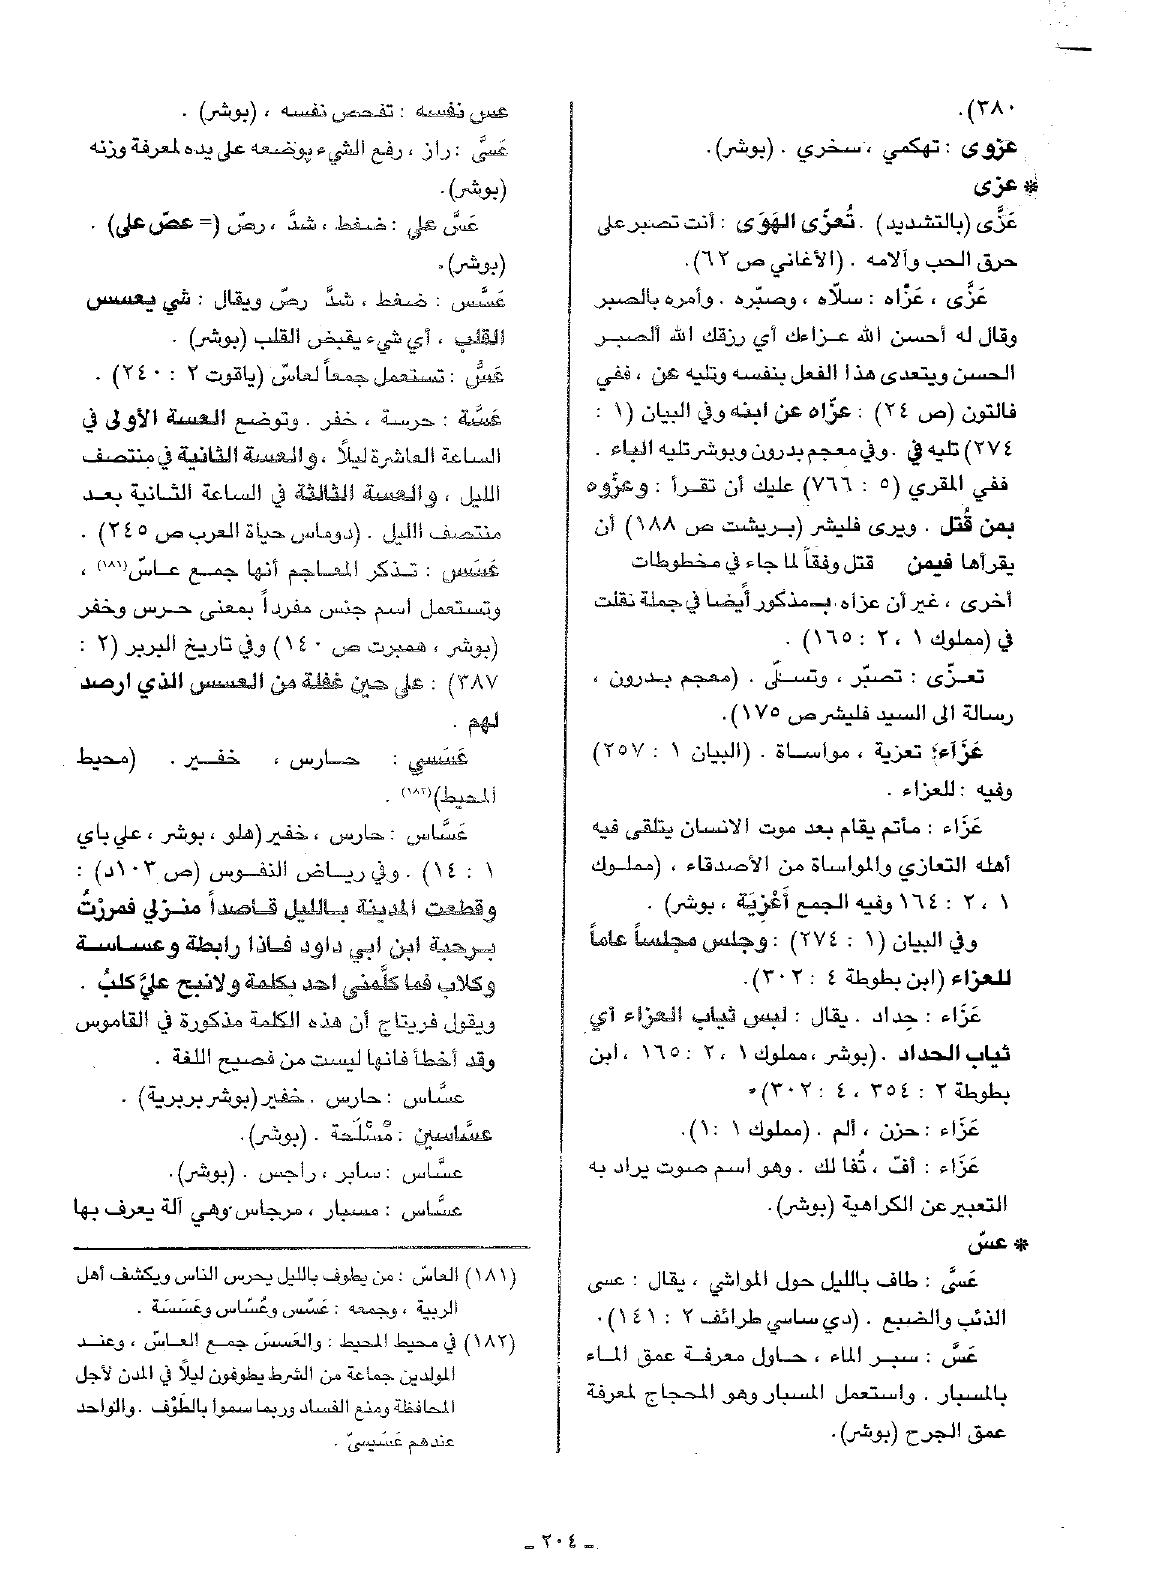 ٣٨٠).
عزوى : تهكمي ، سخري . (بوشر).
* عزى
عَزَّى (بالتشديد) . تُعزّى الهَوَى : أنت تصبر على
حرق الحب وآلامه . (الأغاني ص ٦٢).
عَزَّى ، عَزَّاه : سلاّه ، وصبّره . وأمره بالصبر
وقال له أحسن الله عزاءك أي رزقك الله الصبر
الحسن ويتعدى هذا الفعل بنفسه وتليه عن ، ففي
فالتون (ص ٢٤) : عزّاه عن ابنه وفي البيان (١ :
٢٧٤) تليه في . وفي معجم بدرون وبوشر تليه الباء .
ففي المقري (٥ : ٧٦٦) عليك أن تقرأ : وعزُّوه
بمن قُتل . ويرى فليشر (بريشت ص ١٨٨) أن
يقرأها فيمن قتل وفقاً لما جاء في مخطوطات
أخرى ، غير أن عزاه بـ مذكور أيضاً في جملة نقلت
في (مملوك ١ ، ٢ : ١٦٥) .
تعزّى : تصبّر ، وتسلّى . (معجم بدرون ،
رسالة الى السيد فليشر ص ١٧٥).
عَزَاء : تعزية ، مواساة . (البيان ١ : ٢٥٧)
وفيه : للعزاء .
عَزَاء : مأتم يقام بعد موت الانسان يتلقى فيه
أهله التعازي والمواساة من الأصدقاء ، (مملوك
١ ، ٢ : ١٦٤ وفيه الجمع أَعْزِيَة ، بوشر) .
وفي البيان (١ : ٢٧٤) : وجلس مجلساً عاماً
للعزاء (ابن بطوطة ٤ : ٣٠٢).
عَزَاء : حِداد . يقال : لبس ثياب العزاء أي
ثياب الحداد . (بوشر ، مملوك ١ ، ٢ : ١٦٥ ، ابن
بطوطة ٢ : ٣٥٤ ، ٤ : ٣٠٢).
عَزَاء : حزن ، ألم . (مملوك ١ : ١).
عَزَاء : أفّ ، تُفا لك . وهو اسم صوت يراد به
التعبير عن الكراهية (بوشر).
* عسّ
عَسَّ : طاف بالليل حول المواشي ، يقال : عس
الذئب والضبع . (دي ساسي طرائف ٢ : ١٤١).
عَسَّ : سبر الماء ، حاول معرفة عمق الماء
بالمسبار . واستعمل المسبار وهو المحجاج لمعرفة
عمق الجرح (بوشر).
عس نفسه : تفحص نفسه ، (بوشر) .
عَسَّ : راز ، رفع الشيء بوضعه على يده لمعرفة وزنه
(بوشر).
عَسَّ على : ضغط ، شدَّ ، رصّ (= عصّ على) .
(بوشر).
عَسَّس : ضغط ، شدَّ رصّ ويقال : شي يعسس
القلب ، أي شيء يقبض القلب (بوشر) .
عَسُّ : تستعمل جمعاً لعاسّ (ياقوت ٢ : ٢٤٠) .
عَسَّة : حرسة ، خفر . وتوضع العسة الأولى في
الساعة العاشرة ليلاً ، والعسة الثانية في منتصف
الليل ، والعسة الثالثة في الساعة الثانية بعد
منتصف الليل . (دوماس حياة العرب ص ٢٤٥) .
عَسَس : تذكر المعاجم أنها جمع عاسّ(١٨١) ،
وتستعمل اسم جنس مفرداً بمعنى حرس وخفر
(بوشر ، همبرت ص ١٤٠) وفي تاريخ البربر (٢ :
٣٨٧) : على حين غفلة من العسس الذي ارصد
لهم .
عَسَسي : حارس ، خفير . (محيط
المحيط)(١٨٢) .
عَسَّاس : حارس ، خفير (هلو ، بوشر ، علي باي
١ : ١٤) . وفي رياض النفوس (ص ١٠٣د) :
وقطعت المدينة بالليل قاصداً منزلي فمررتُ
برحبة ابن ابي داود فاذا رابطة وعساسة
وكلاب فما كلَّمني احد بكلمة ولا نبح عليَّ كلبُ .
ويقول فريتاج أن هذه الكلمة مذكورة في القاموس
وقد أخطأ فانها ليست من فصيح اللغة .
عسَّاس : حارس . خفير (بوشر بربرية) .
عسَّاسين : مُسْلَحة . (بوشر).
عسَّاس : سابر ، راجس . (بوشر).
عسَّاس : مسبار ، مرجاس وهي آلة يعرف بها
(١٨١) العاسّ : من يطوف بالليل يحرس الناس ويكشف أهل
الريبة ، وجمعه : عَسَس وعُسَّاس وعَسَسَة .
(١٨٢) في محيط المحيط : والعَسسَ جمع العاسّ ، وعند
المولدين جماعة من الشرط يطوفون ليلاً في المدن لأجل
المحافظة ومنع الفساد وربما سموا بالطَوْف . والواحد
عندهم عَسَسِيّ .
- ٢٠٤ -